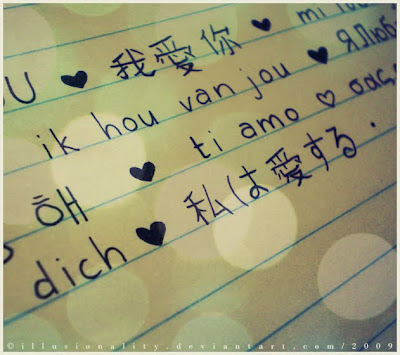 U ♥ 我愛你 ♥ mi
ik hou van jou ♥ Я Люб
해 ♥ ti amo ♡
dich ♥ 私は愛する.
©illusionality.deviantart.com/2009